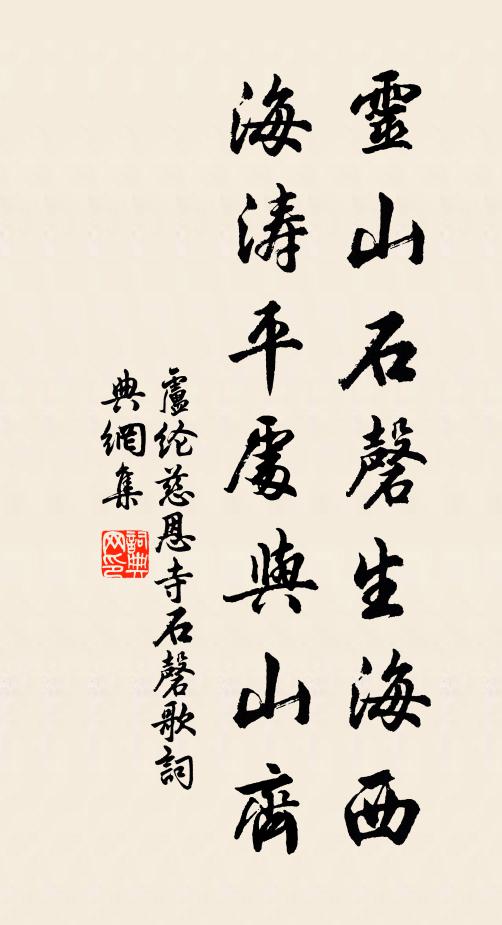 靈山石磬生海西
海濤平處與山齊
盧纶慈恩寺石磬歌詞
典網集
詞典网印